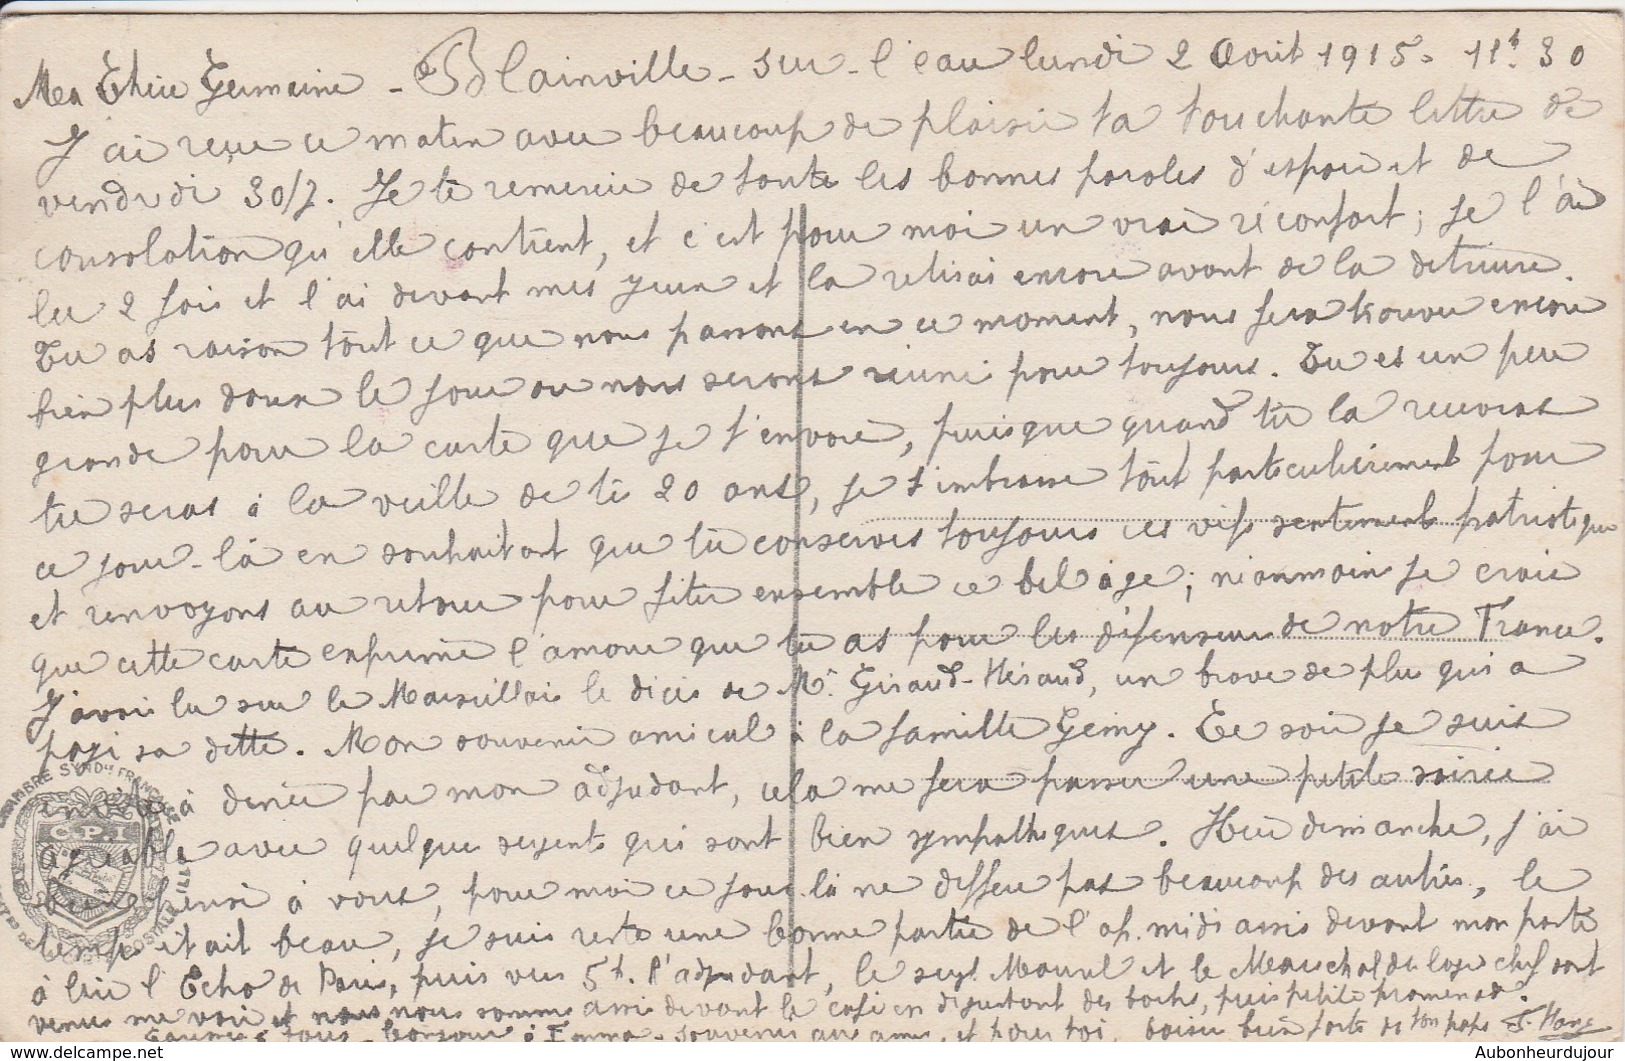 Ma Chère Germaine - Blainville - sur - l'eau lundi 2 Aout 1915. 11h. 30
J'ai reçue ce matin avec beaucoup de plaisir ta touchante lettre de
vendredi 30/7. Je te remercie de toute les bonnes paroles d'espoir et de
consolation qu'elle contient, et c'est pour moi un vrai réconfort; je l'ai
lu 2 fois et l'ai devant mes yeux et la relisai encore avant de la détruire.
Tu as raison tout ce que nous passons en ce moment, nous fera trouver encore
bien plus doux le jour ou nous serons réuni pour toujours. Tu es un peu
grande pour la carte que je t'envoie, puisque quand tu la recevras
tu seras à la veille de tes 20 ans, je t'embrasse tout particulièrement pour
ce jour-là en souhaitant que tu conserves toujours ces vifs sentiments patriotique
et renvoyons au retour pour fêter ensemble ce bel âge; néanmoins je crois
que cette carte exprime l'amour que tu as pour les défenseurs de notre France.
J'avais lu sur le Marseillais le décès de Mr. Giraud-Héraud, un brave de plu qui a
payé sa dette. Mon souvenir amical à la famille Geiny. Ce soir je suis
invité à diner par mon adjudant, cela me fera passer une petite soirée
agréable avec quelque sergents qui sont bien sympathiques. Hier dimanche, j'ai
bien pensé à vous, pour moi ce jour là ne diffère pas beaucoup des autres, le
temps était beau, je suis resté une bonne partie de l'ap. midi assis devant mon porte
à lire l'Echo de Paris, puis vers 5h. l'adjudant, le sergt Maurel et le Maréchal des logis chef sont
venus me voir et nous nous sommes assis devant le café en dégustant des bocks, puis petite promenade.
tous - bonjour à Emma - souvenir aux amis, et pour toi, baiser bien forts de ton papa
CHAMBRE SYND. FRANÇAISE
C.P.I
POSTALE
Aubonheurdujour